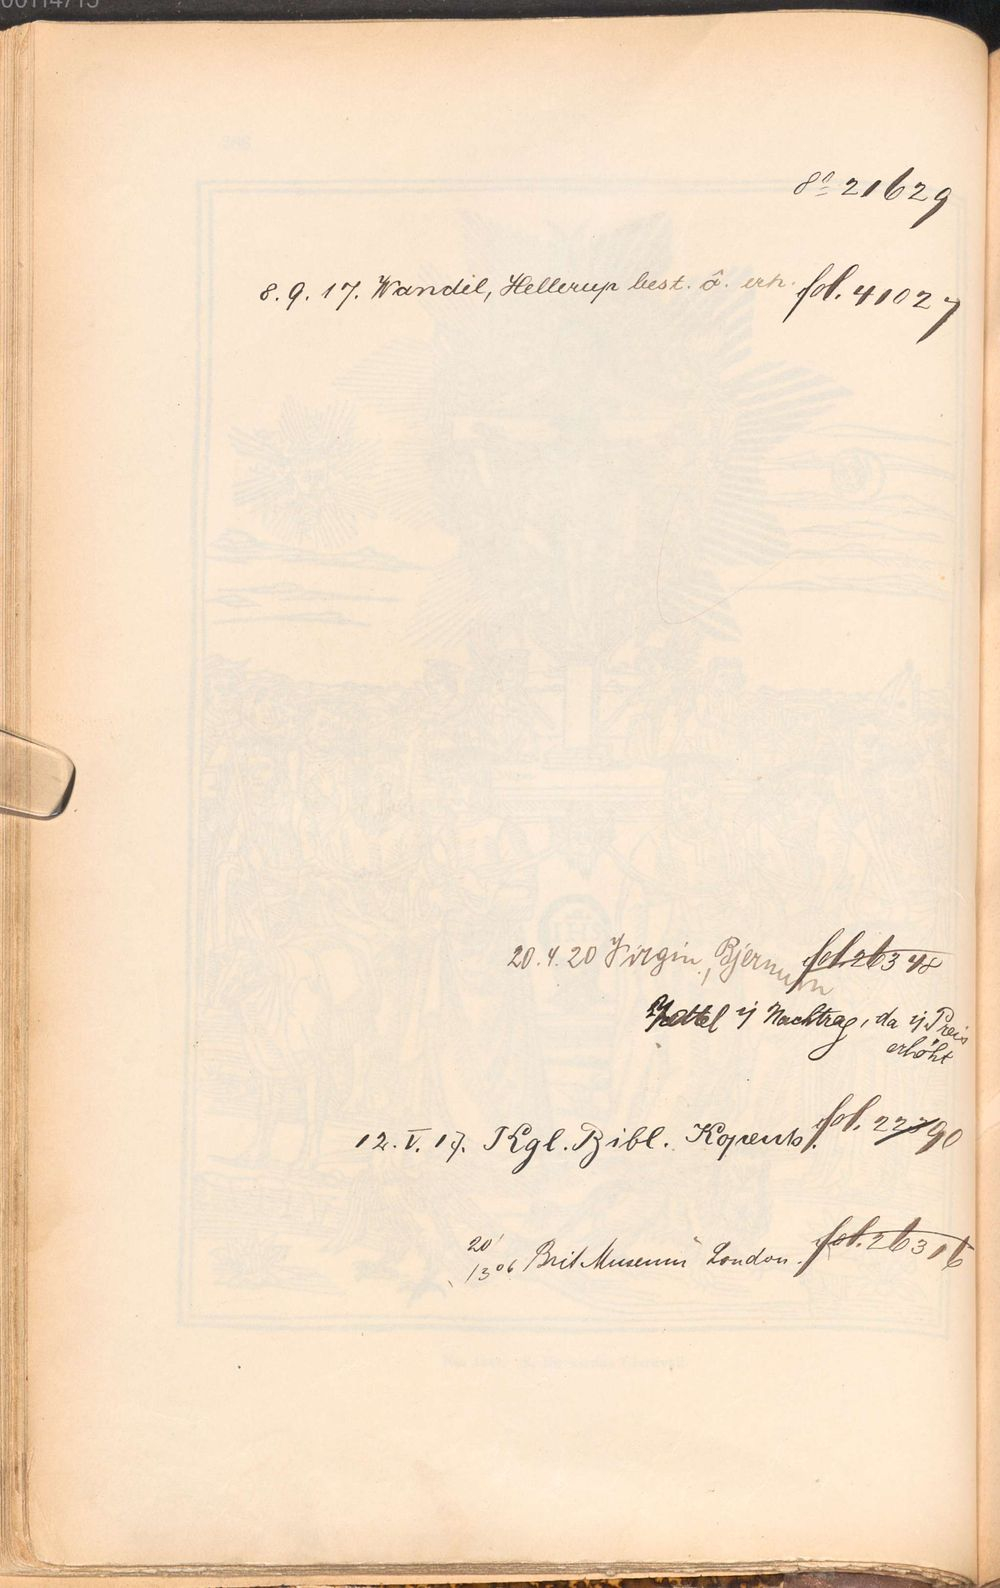 8° 21629
8.9.17. Wandel, Hellerup best. erh. fol. 41027
20.4.20 Virgin, Bjernum fol. 26348
Zettel ij Nachtrag, da ij Preis
erhöht
12.V.17. Kgl. Bibl. Kopenh. fol. 22790
20/
1306 Brit Museum London. fol. 26316